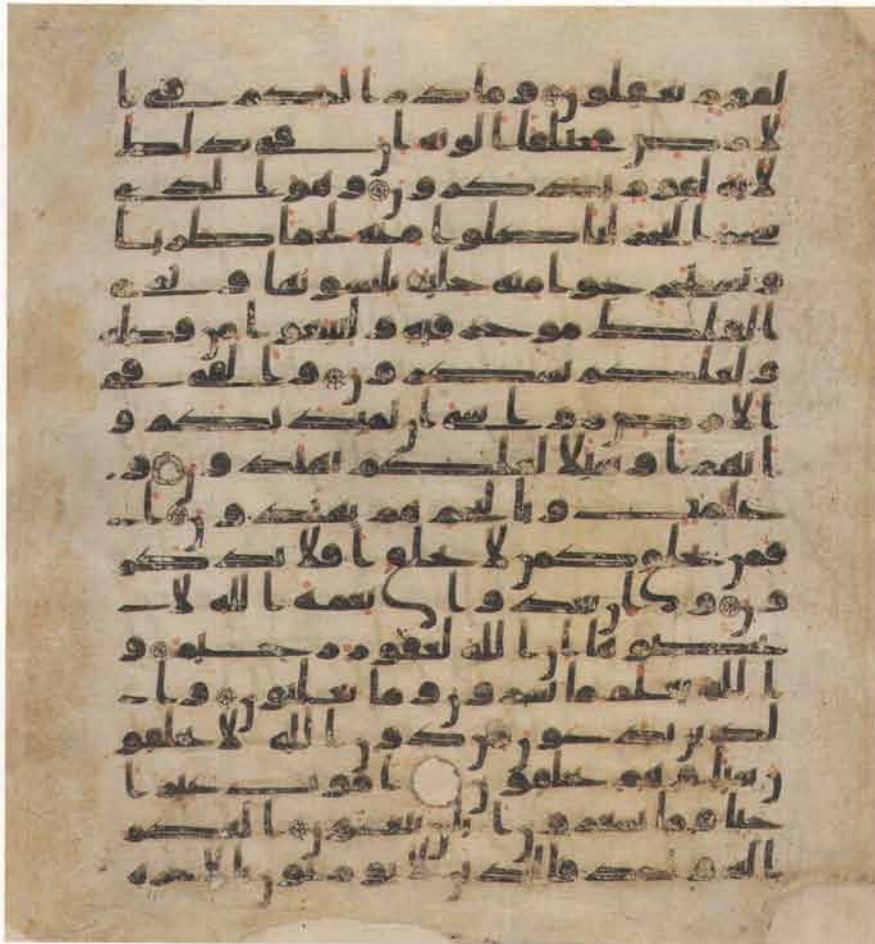 لقوم يعقلون وما ذرا لكم في ا
لارض مختلفا الونه ان في ذلك
لايه لقوم يذكرون وهو الذي
سخر البحر لتاكلوا منه لحما طريا
وتستخرجوا منه حليه تلبسونها وترى
الفلك موخر فيه ولتبتغوا من فضله
ولعلكم تشكرون والقى في
الارض روسي ان تميد بكم و
انهرا وسبلا لعلكم تهتدون و
علمت وبالنجم هم يهتدون ا
فمن يخلق كمن لا يخلق افلا تذكر
ون وان تعدوا نعمه الله لا
تحصوها ان الله لغفور رحيم و
الله يعلم ما تسرون وما تعلنون وا
لذين يدعون من دون الله لا يخلقو
ن شيا وهم يخلقون اموت غير ا
حيا وما يشعرون ايان يبعثون الهكم
اله وحد فالذين لا يومنون بالاخره